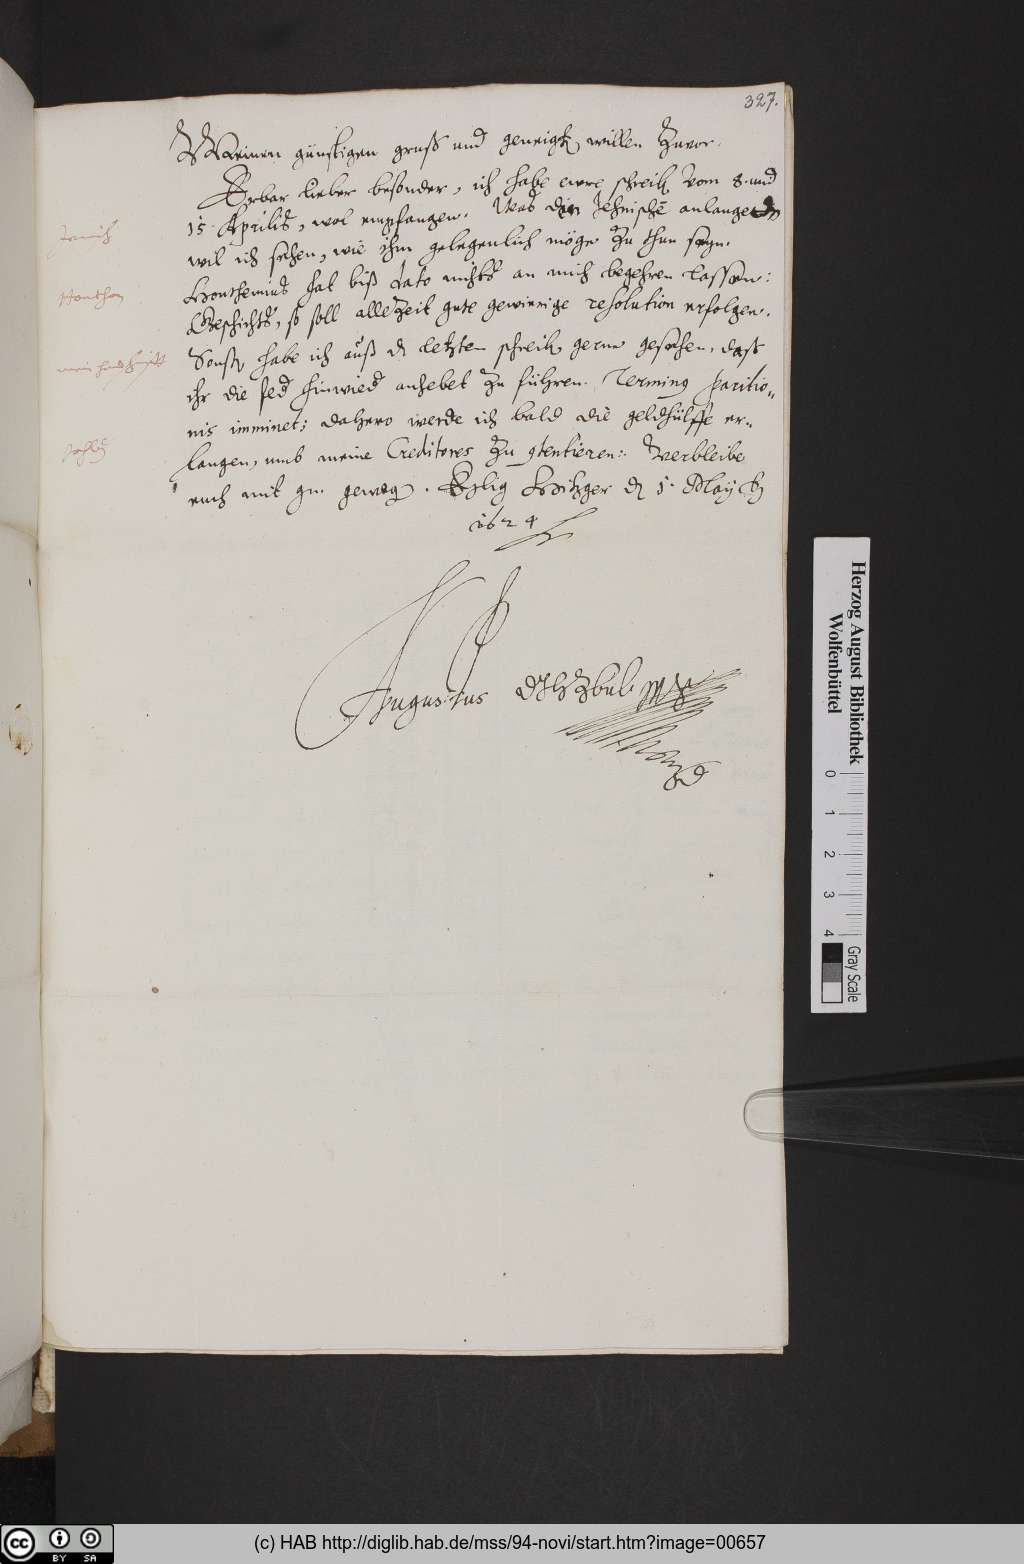 327.
Meinen günstigen gruß und geneigtē willen zuvor.
Erbar lieber besonder, ich habe ewre schreibē vom 8. und
15. Aprilis, wol empfangen. Was die Jehnische anlanget
wil ich sehen, wie ihm gelegenlich möge zu thun seyn.
Jenisch
Honthemius hat biß dato nichts an mich begehren lassen:
Honthem
Geschichts, so soll allezeit gute gewierige resolution erfolgen.
Sonst habe ich auß dē letzten schreibē gerne gesehen, daß
mein handschrifft
ihr die fed hinwied anhebet zu führen. Terming paritio=
nis imminet; dahero werde ich bald die geldhülffe er=
langen, umb meine Creditores zu gtentieren: Verbleibe
euch mit gn. gewog. Eylig Hitzger dē 1. Maij
1624
Augustus DJHZBUL
mp
Herzog August Bibliothek
Wolfenbüttel
0 1 2 3 4
Gray Scale
cc BY SA
(c) HAB http://diglib.hab.de/mss/94-novi/start.htm?image=00657